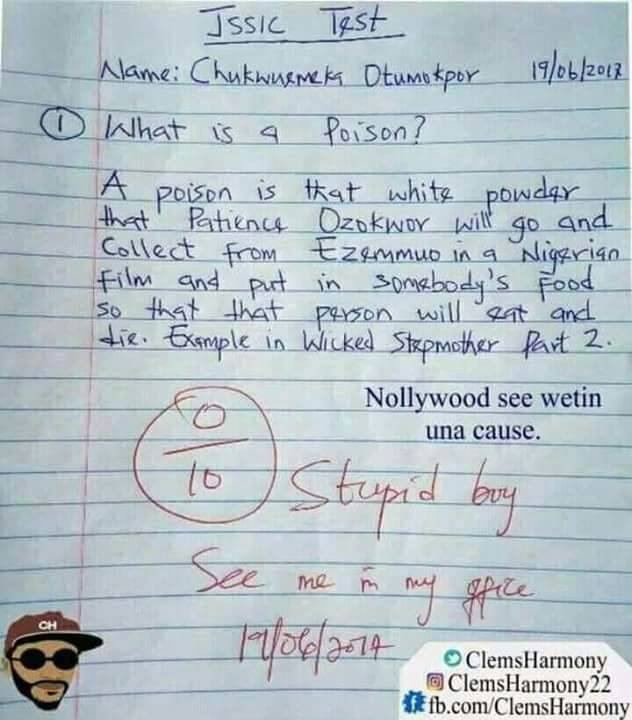 JSS1C Test
Name: Chukwuemeka Otumokpor 19/06/2017
1 What is a Poison?
A poison is that white powder
that Patience Ozokwor will go and
Collect from Ezemmuo in a Nigerian
film and put in somebody's Food
so that that person will eat and
die. Example in Wicked Stepmother Part 2.
Nollywood see wetin
una cause.
0
10
Stupid boy
See me in my office
19/06/2017
CH
ClemsHarmony
ClemsHarmony22
fb.com/ClemsHarmony